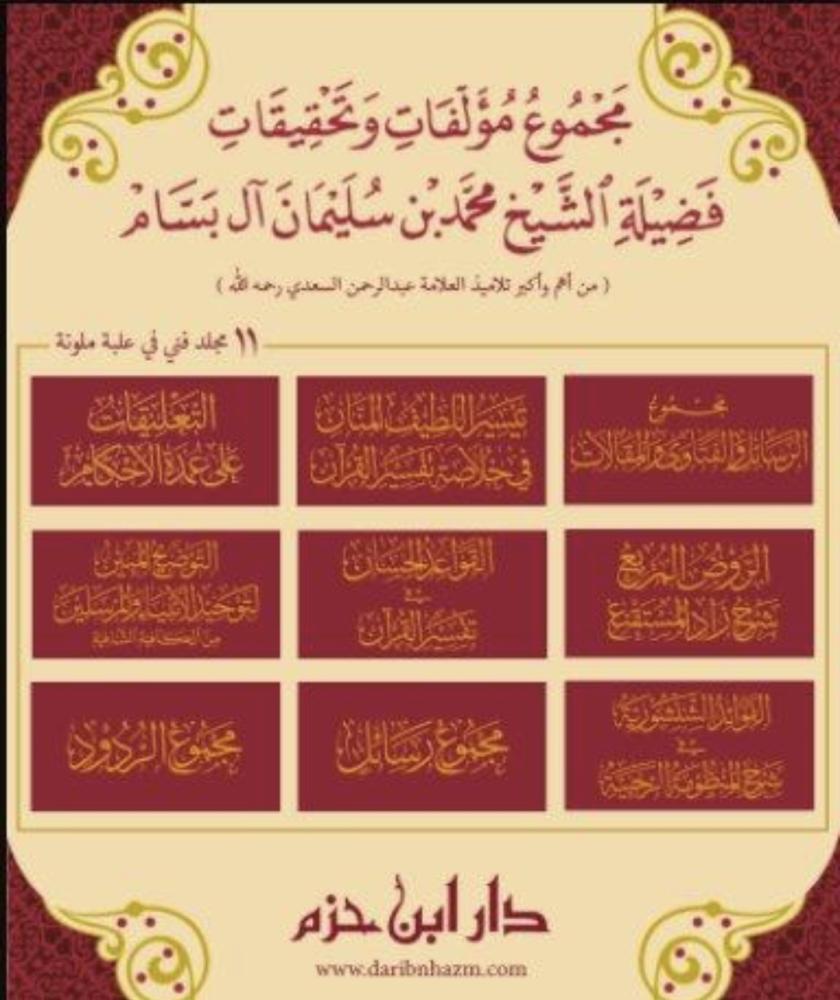 مَجْمُوعُ مُؤَلَّفَاتِ وَتَحْقِيقَاتِ
فَضِيلَةِ الشَّيْخِ مُحَمَّد بْن سُلَيْمَانَ آل بَسَّامْ
( من أهم وأكبر تلاميذ العلامة عبدالرحمن السعدي رحمه الله )
١١ مجلد فني في علبة ملونة
مجموع
الرسائل والفتاوى والمقالات
تيسير اللطيف المنان
في خلاصة تفسير القرآن
التعليقات
على عمدة الأحكام
الروض المربع
شرح زاد المستقنع
القواعد الحسان
في
تفسير القرآن
التوضيح المبين
لتوحيد الأنبياء والمرسلين
من الكافية الشافية
الفوائد الشنشورية
في
شرح المنظومة الرحبية
مجموع رسائل
مجموع الردود
دار ابن حزم
www.daribnhazm.com